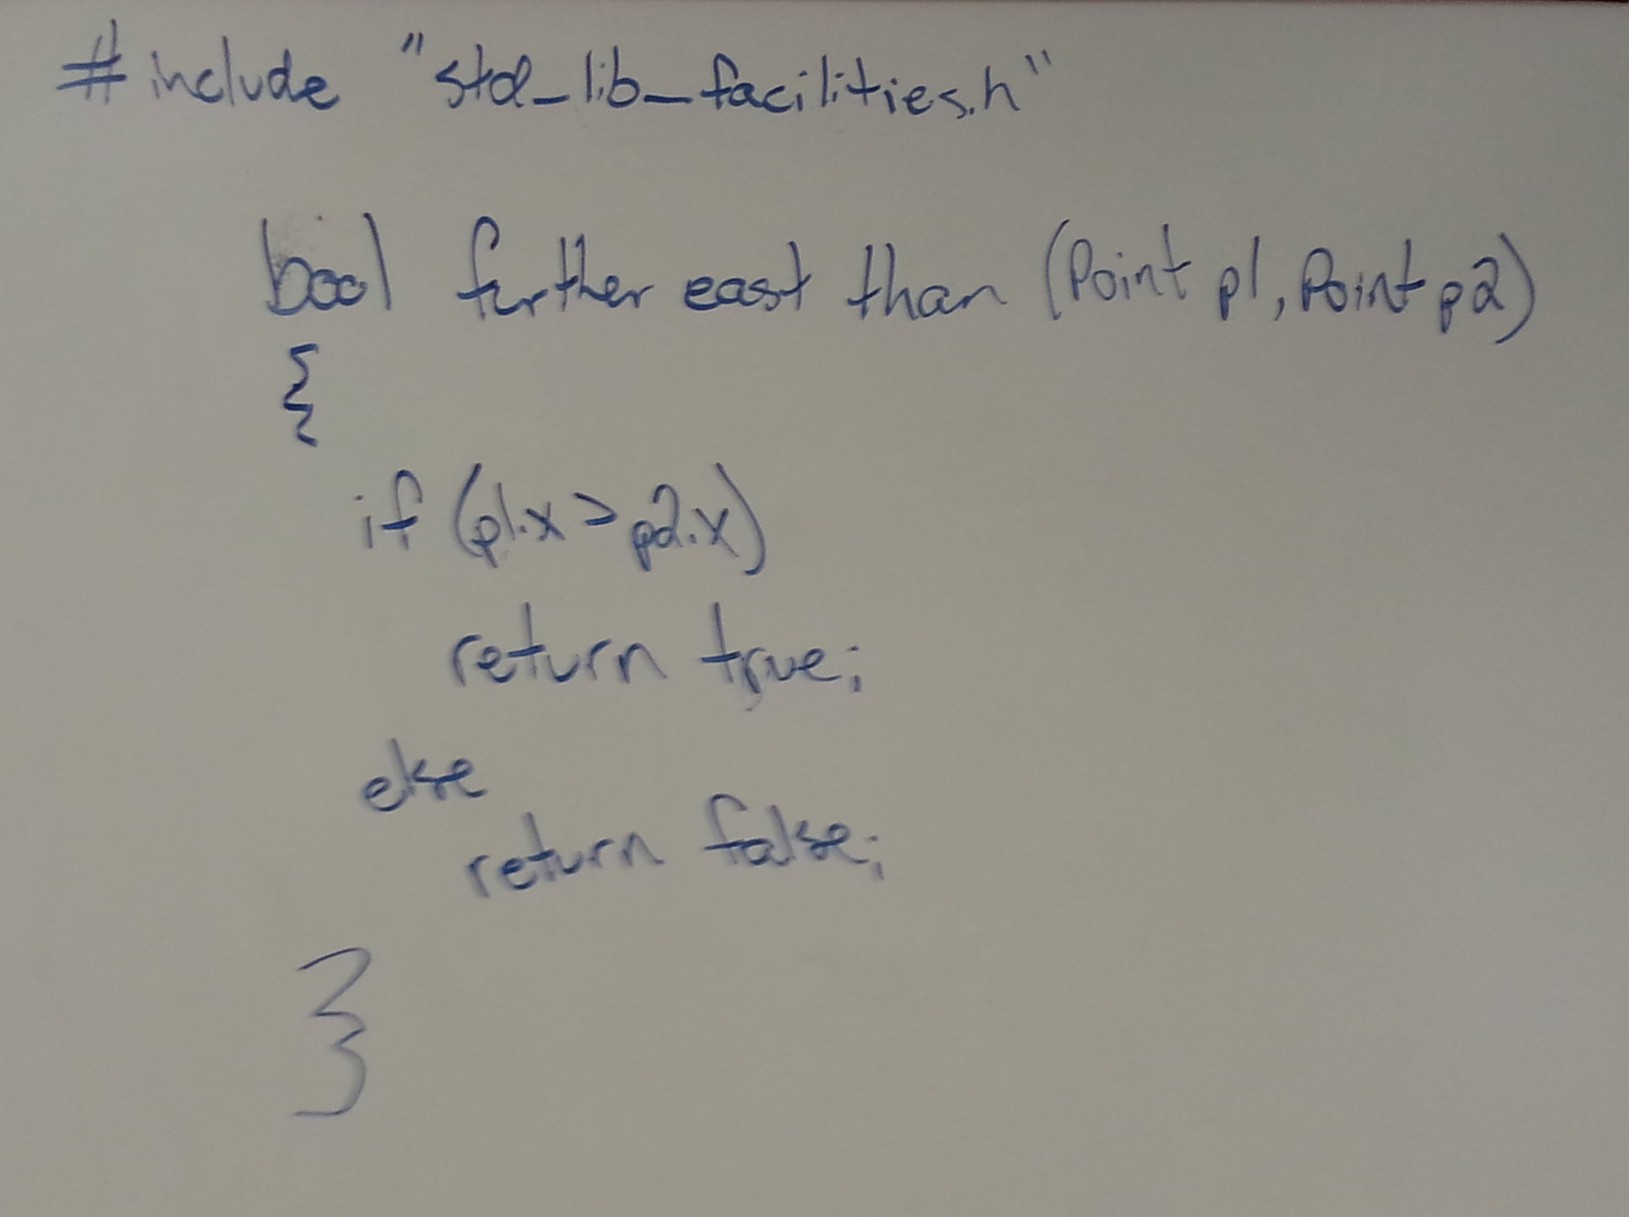 #include "std_lib_facilities.h"
bool further east than (Point p1, Point p2)
{
if (p1.x > p2.x)
return true;
else
return false;
}